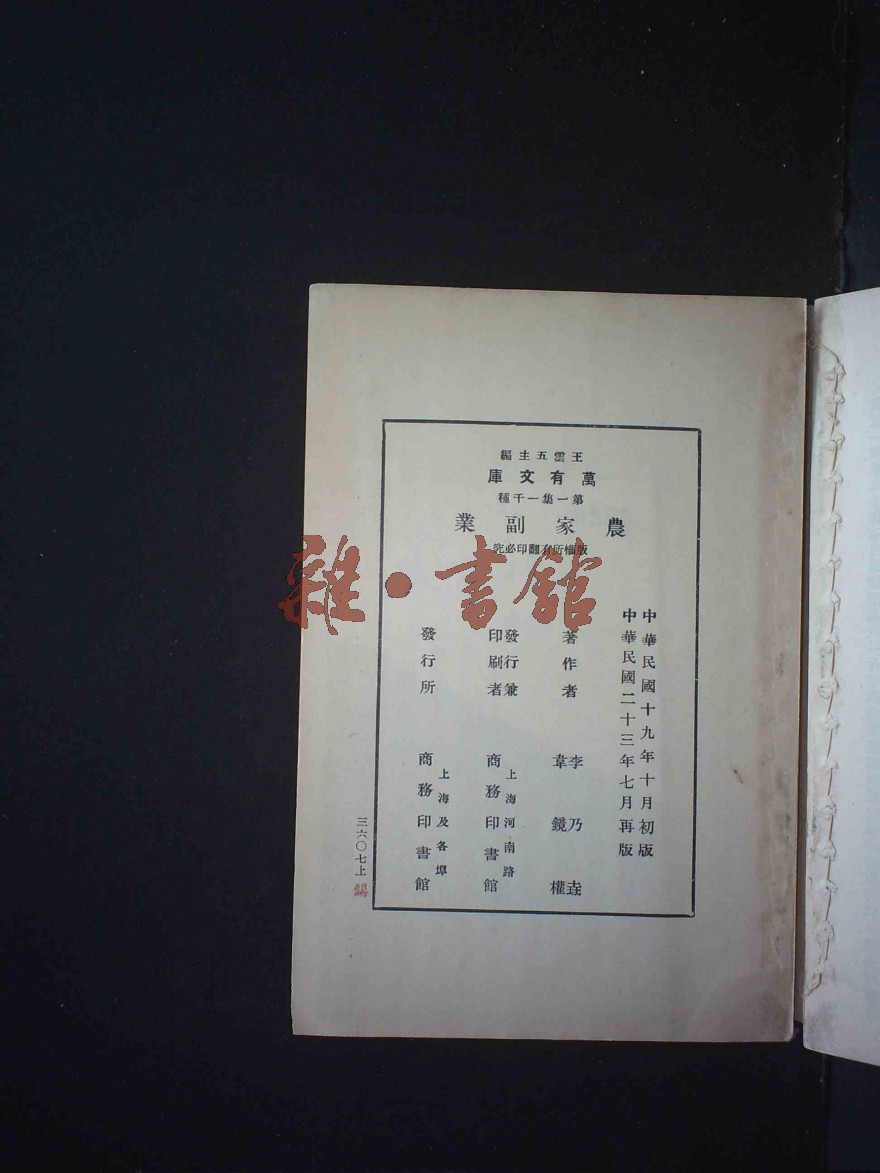 王雲五主編
萬有文庫
第一集一千種
農家副業
版權所有翻印必究
中華民國十九年十月初版
中華民國二十三年七月再版
著作者
李乃垚
韋鏡權
發行兼
印刷者
上海河南路
商務印書館
發行所
上海及各埠
商務印書館
三六〇七上
雜·書館